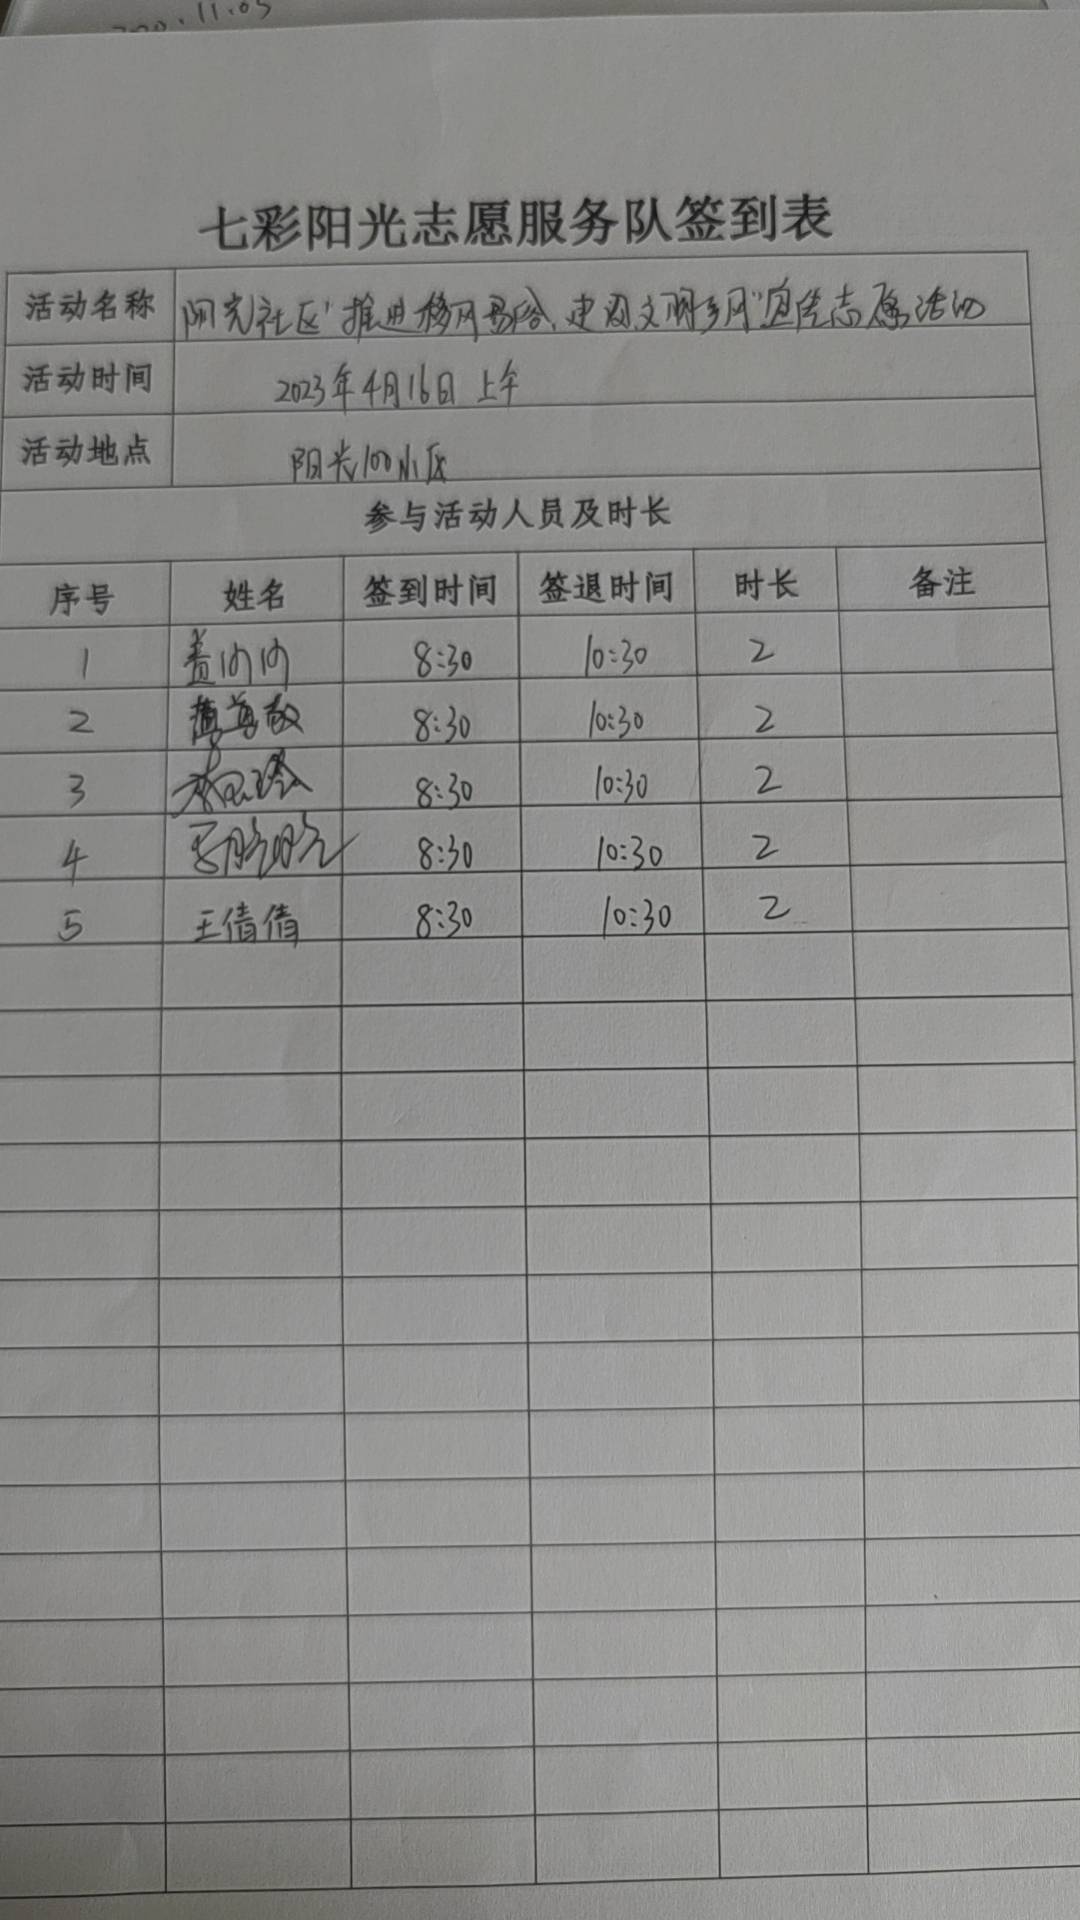 11.05
七彩阳光志愿服务队签到表
活动名称 阳光社区"推进移风易俗、建设文明乡风"宣传志愿活动
活动时间 2023年4月16日 上午
活动地点 阳光100小区
参与活动人员及时长
序号 姓名 签到时间 签退时间 时长 备注
1 8:30 10:30 2
2 8:30 10:30 2
3 8:30 10:30 2
4 8:30 10:30 2
5 王倩倩 8:30 10:30 2